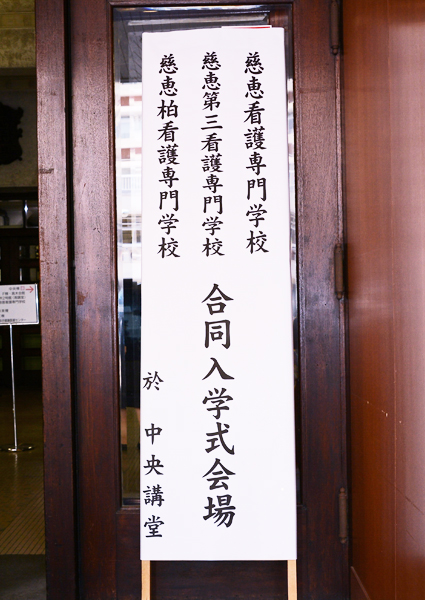 慈恵看護専門学校
慈恵第三看護専門学校
慈恵柏看護専門学校
合同入学式会場
於 中央講堂